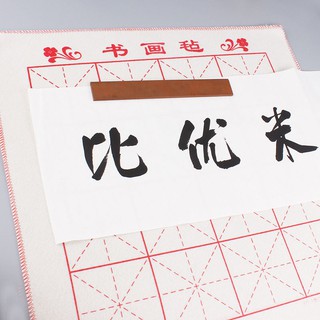 书画毡
比优米